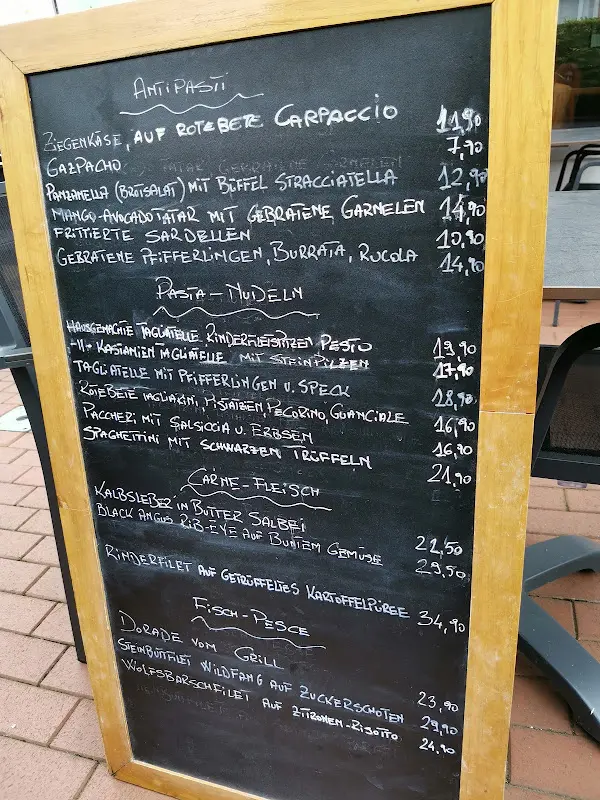 ANTIPASTI
ZIEGENKÄSE, AUF ROTEBETE CARPACCIO 11,90
GAZPACHO 7,90
PANZANELLA (BROTSALAT) MIT BÜFFEL STRACCIATELLA 12,90
MANGO-AVOCADOTATAR MIT GEBRATENE GARNELEN 14,90
FRITTIERTE SARDELLEN 10,90
GEBRATENE PFIFFERLINGEN, BURRATA, RUCOLA 14,90
PASTA-NUDELN
HAUSGEMACHTE TAGLIATELLE RINDERFLEISPITZEN PESTO 19,90
-11- KASTANIEN TAGLIATELLE MIT STEINPILZEN 17,90
TAGLIATELLE MIT PFIFFERLINGEN U. SPECK 18,90
ROTEBETE TAGLIOLINI, PISTAZIEN, PECORINO, GUANCIALE 16,90
PACCHERI MIT SALSICCIA U. ERBSEN 16,90
SPAGHETTINI MIT SCHWARZEN TRÜFFELN 21,90
CARNE-FLEISCH
KALBSLEBER IN BUTTER SALBEI 21,50
BLACK ANGUS RIB-EYE AUF BUNTEM GEMÜSE 29,50
RINDERFILET AUF GETRÜFFELTES KARTOFFELPÜREE 34,90
FISCH-PESCE
DORADE VOM GRILL 23,90
STEINBUTTFILET WILDFANG AUF ZUCKERSCHOTEN 29,90
WOLFSBARSCHFILET AUF ZITRONEN-RISOTTO 24,90